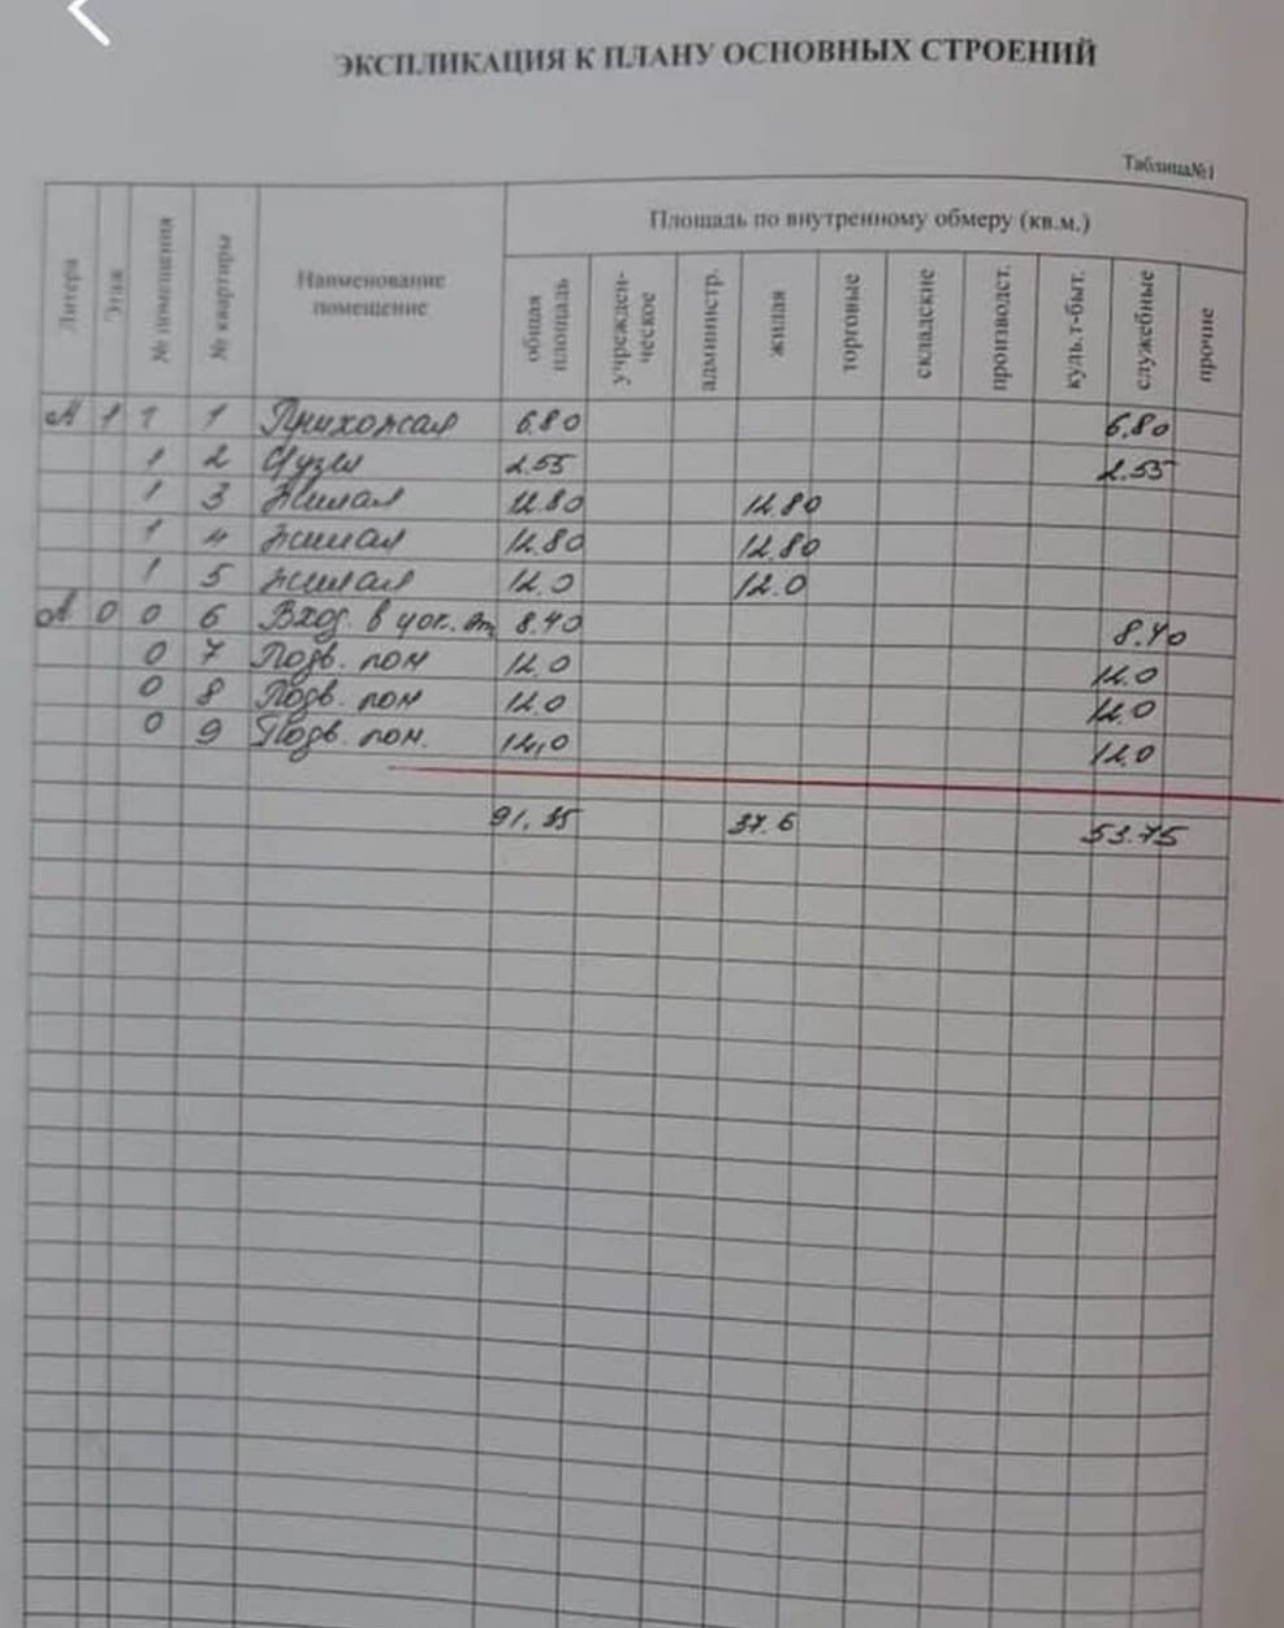 ЭКСПЛИКАЦИЯ К ПЛАНУ ОСНОВНЫХ СТРОЕНИЙ
Таблица№1
Литера Этаж № помещения № квартиры Наименование помещение Площадь по внутренному обмеру (кв.м.)
общая площадь учрежден-ческое администр. жилая торговые складские производст. куль.т-быт. служебные прочие
А 1 1 1 Прихожая 6.80 6.80
1 2 С/узел 2.55 2.55
1 3 Жилая 12.80 12.80
1 4 Жилая 12.80 12.80
1 5 Жилая 12.0 12.0
А 0 0 6 Вход. в цок. эт. 8.40 8.40
0 7 Подв. пом 12.0 12.0
0 8 Подв. пом 12.0 12.0
0 9 Подв. пом. 12,0 12.0
91.35 37.6 53.75